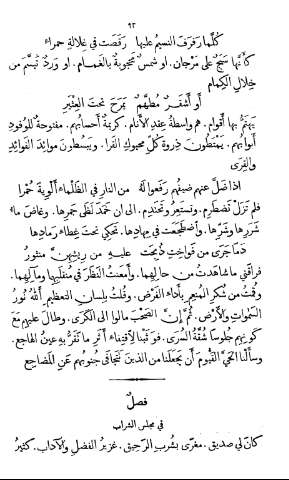 ٩٢
كلّما رفرف النسيم عليها رقصت في غلالة حمراء
كأنّها سبج على مرجان. او شمس محجوبة بالغمام. او ورد تبسّم من
خلال الكمام
أو أشقر مطهّم يمرح تحت العِثْيَر
يهتمّ بها أقوام. هم واسطة عقد الأنام. كريمة أحسابهم. مفتوحة للوفود
أبوابهم. يمتطون ذروة كلّ محبوك القرا. ويبسطون موائد الفوائد
والقرى
اذا ضلّ عنهم ضيفهم رفعوا له من النار في الظلماء ألوية حمرا
فلم تزل تضطرم. وتستعر وتحتدم. الى ان خمد لظى جمرها. وغاض ماء
شررها وشرّها. واضطجعت في مهادها. تحكي تحت غطاء رمادها
دما جرى من فواخت ذبحت عليه من ريشهنّ منثور
فراقني ما شاهدت من حالهما. وأمعنت النظر في منقلبها ومآلهما.
وقمت من شكر المنعم بأداء الفرض. وقلت بلسان التعظيم الله نور
السموات والأرض. ثمّ إنّ الصحب مالوا الى الكرى. وطال عليهم مع
كونهم جلوسا شقّة السرى. فوثبنا لاقتفاء أثر ما تقرّ به عين الهاجع.
وسألنا الحيّ القيّوم أن يجعلنا من الذين تتجافى جنوبهم عن المضاجع
فصل
في مجلس الشراب
كان لي صديق. مغرى بشرب الرحيق. غزير الفضل والآداب. كثير